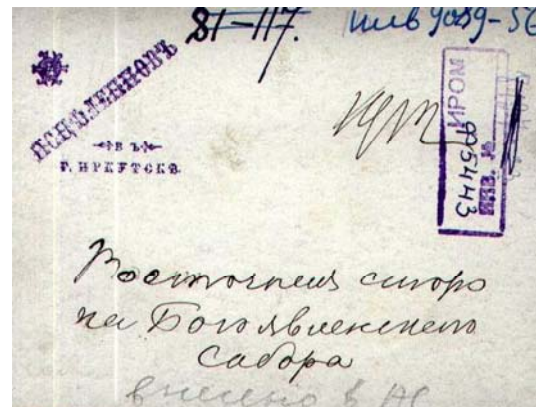 81-117.
инв 9089-56
ИСЦѢЛЕННОВЪ
ВЪ
Г. ИРКУТСКѢ
ИРОМ
ИНВ. №
Ф5443
Восточная сторо
на Богоявленского
собора
внесено в